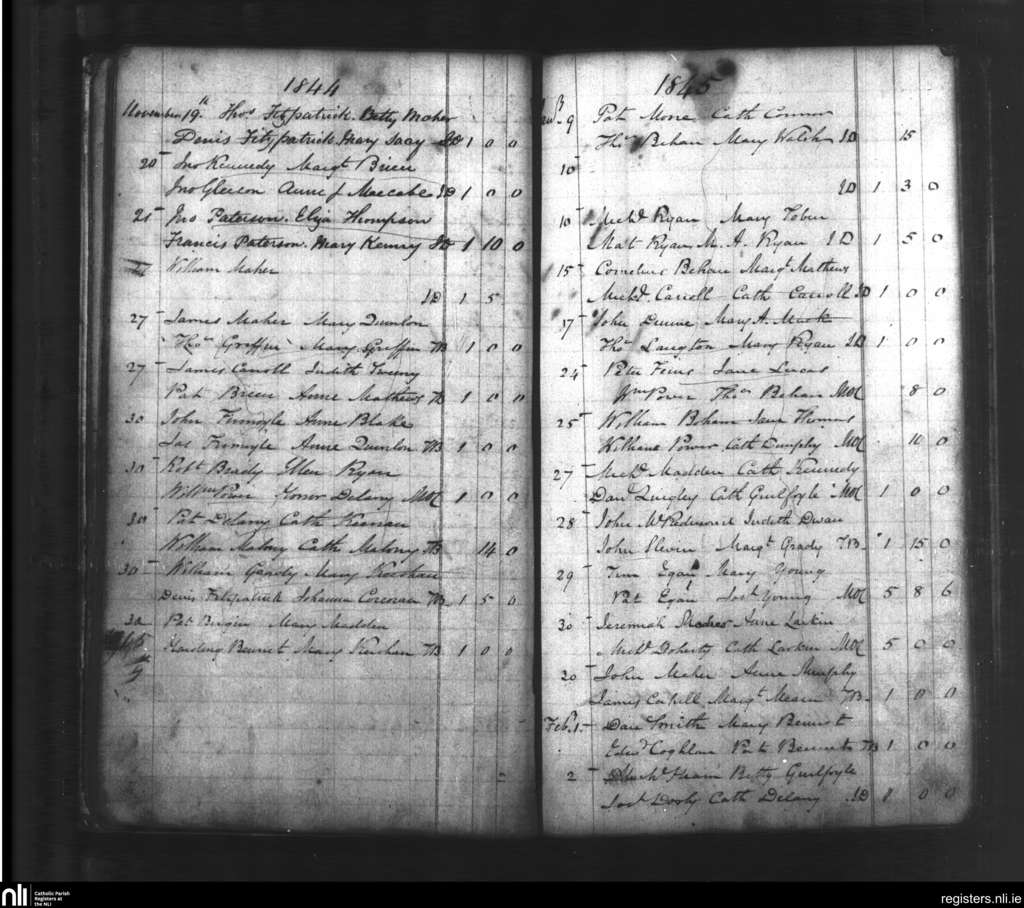 1844
November 19th Thos Fitzpatrick Betty Maher
Denis Fitzpatrick Mary JD 1 0 0
20 Jno Kennedy Margt Brien
Jno Gleeson Anne J Maccabe JD 1 0 0
25 Jno Paterson Eliza Thompson
Francis Paterson Mary Kenny JD 1 10 0
William Maher
JD 1 5
27 James Maher Mary Quinlon
Thos Griffin Mary Griffin TB 1 0 0
27 James Carroll Judith
Pat Brien Anne Mathews TB 1 0 0
30 John Finnoyle Anne Blake
Jas Finnoyle Anne Quinlon TB 1 0 0
30 Robt Brady Ellen Ryan
Willm Power Honor Delany MOC 1 0 0
30 Pat Delany Cath Keenan
William Malony Cath Malony TB 14 0
30 William Grady Mary
Denis Fitzpatrick Johanna Corcoran TB 1 5 0
30 Pat Bergin Mary Madden
Harding Bennet Mary TB 1 0 0
1845
9 Pat Mone Cath Connor
Thos Behan Mary Walsh JD 15
10
JD 1 3 0
10 Michl Ryan Mary Tobin
Mat Ryan M. A. Ryan JD 1 5 0
15 Cornelius Behan Margt Mathews
Michl Carroll Cath Carroll JD 1 0 0
17 John Dunne Mary A. Mack
Thos Langton Mary Ryan JD 1 0 0
24 Peter Jane Lucas
Wm Power Thos Behan MOC 8 0
25 William Boham Jane Thomas
William Power Cath Dunphy MOC 10 0
27 Michl Madden Cath Kennedy
Danl Quigley Cath Guilfoyle MOC 1 0 0
28 John McRedmond Judith Dwan
John Margt Grady TB 1 15 0
29 Tim Egan Mary Young
Pat Egan Josh Young MOC 5 8 6
30 Jeremiah Anne Larkin
Michl Doherty Cath Larkin MOC 5 0 0
20 John Maher Anne Murphy
James Cahill Margt Meara TB 1 0 0
Feb. 1 Dan Smith Mary Bennet
Edwd Coghlan Pat Bennet TB 1 0 0
2 Betty Guilfoyle
Josh Dooly Cath Delany JD 8 0 0
nli
Catholic Parish
Registers at
the NLI
registers.nli.ie